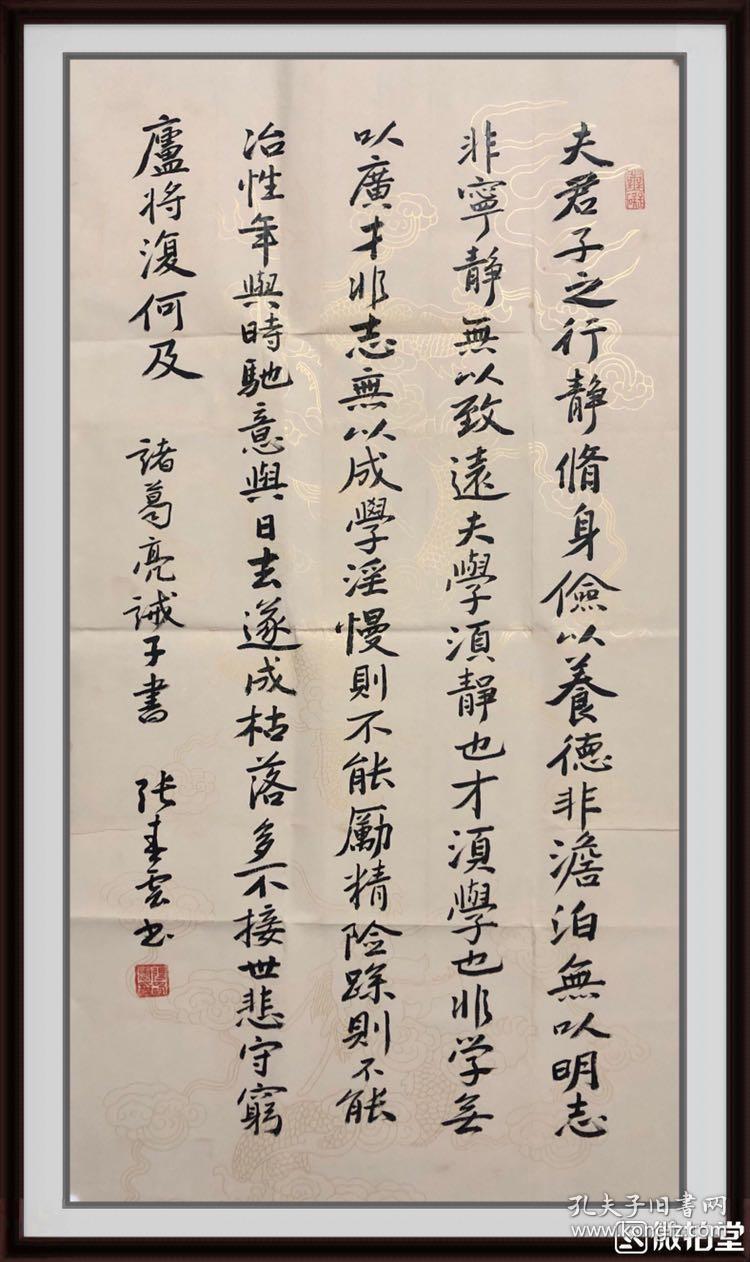 夫君子之行静脩身儉以養德非澹泊無以明志
非寧静無以致遠夫學須静也才須學也非学無
以廣才非志無以成學淫慢則不能勵精险躁則不能
冶性年與時馳意與日去遂成枯落多不接世悲守窮
廬将復何及
諸葛亮誡子書
张春雲书
孔夫子旧书网
www.kongfz.com
微拍堂